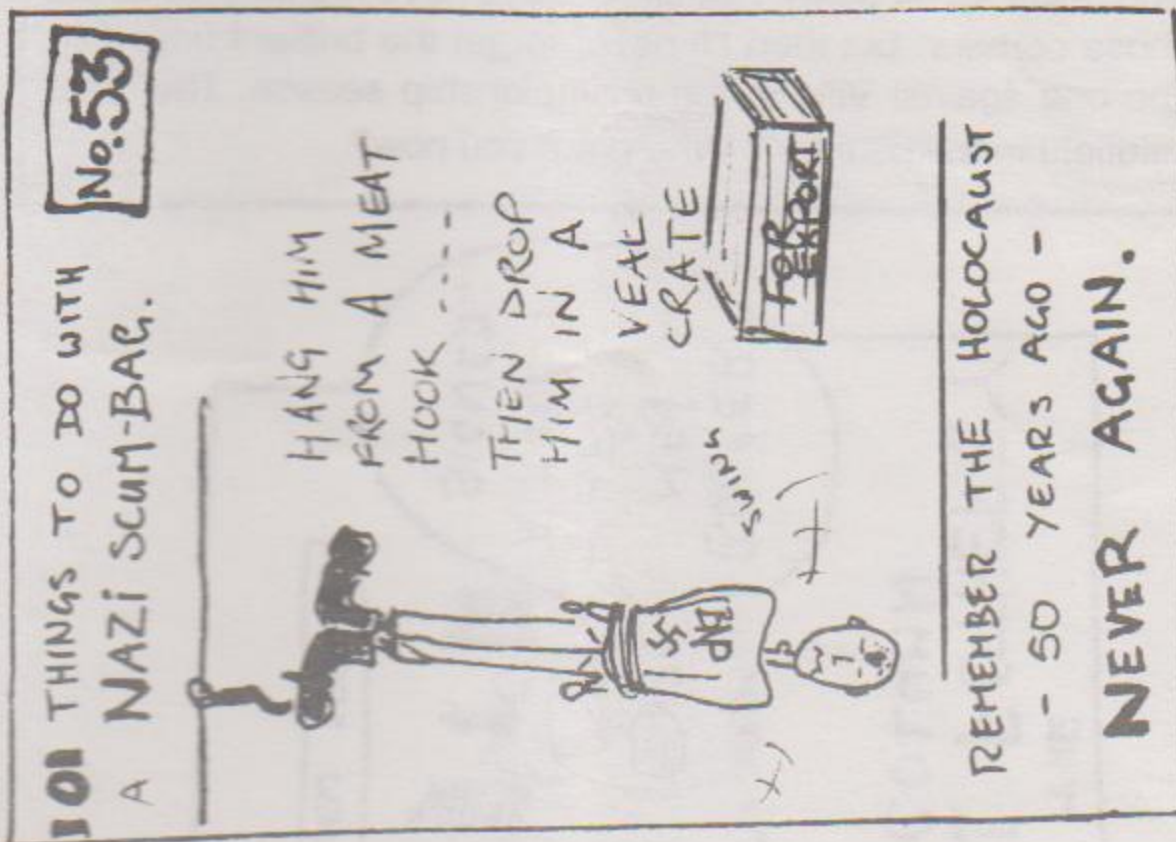 101 THINGS TO DO WITH
A NAZI SCUM-BAG.
No.53
HANG HIM
FROM A MEAT
HOOK .....
THEN DROP
HIM IN A
VEAL
CRATE
卐
BNP
SWING
FOR
EXPORT
REMEMBER THE HOLOCAUST
- 50 YEARS AGO -
NEVER AGAIN.